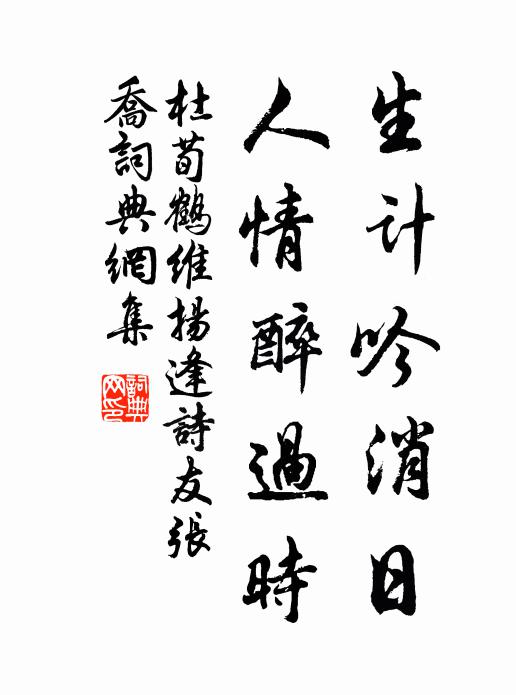 生計吟消日
人情醉過時
杜荀鶴維揚逢詩友張
喬詞典網集
詞典網印